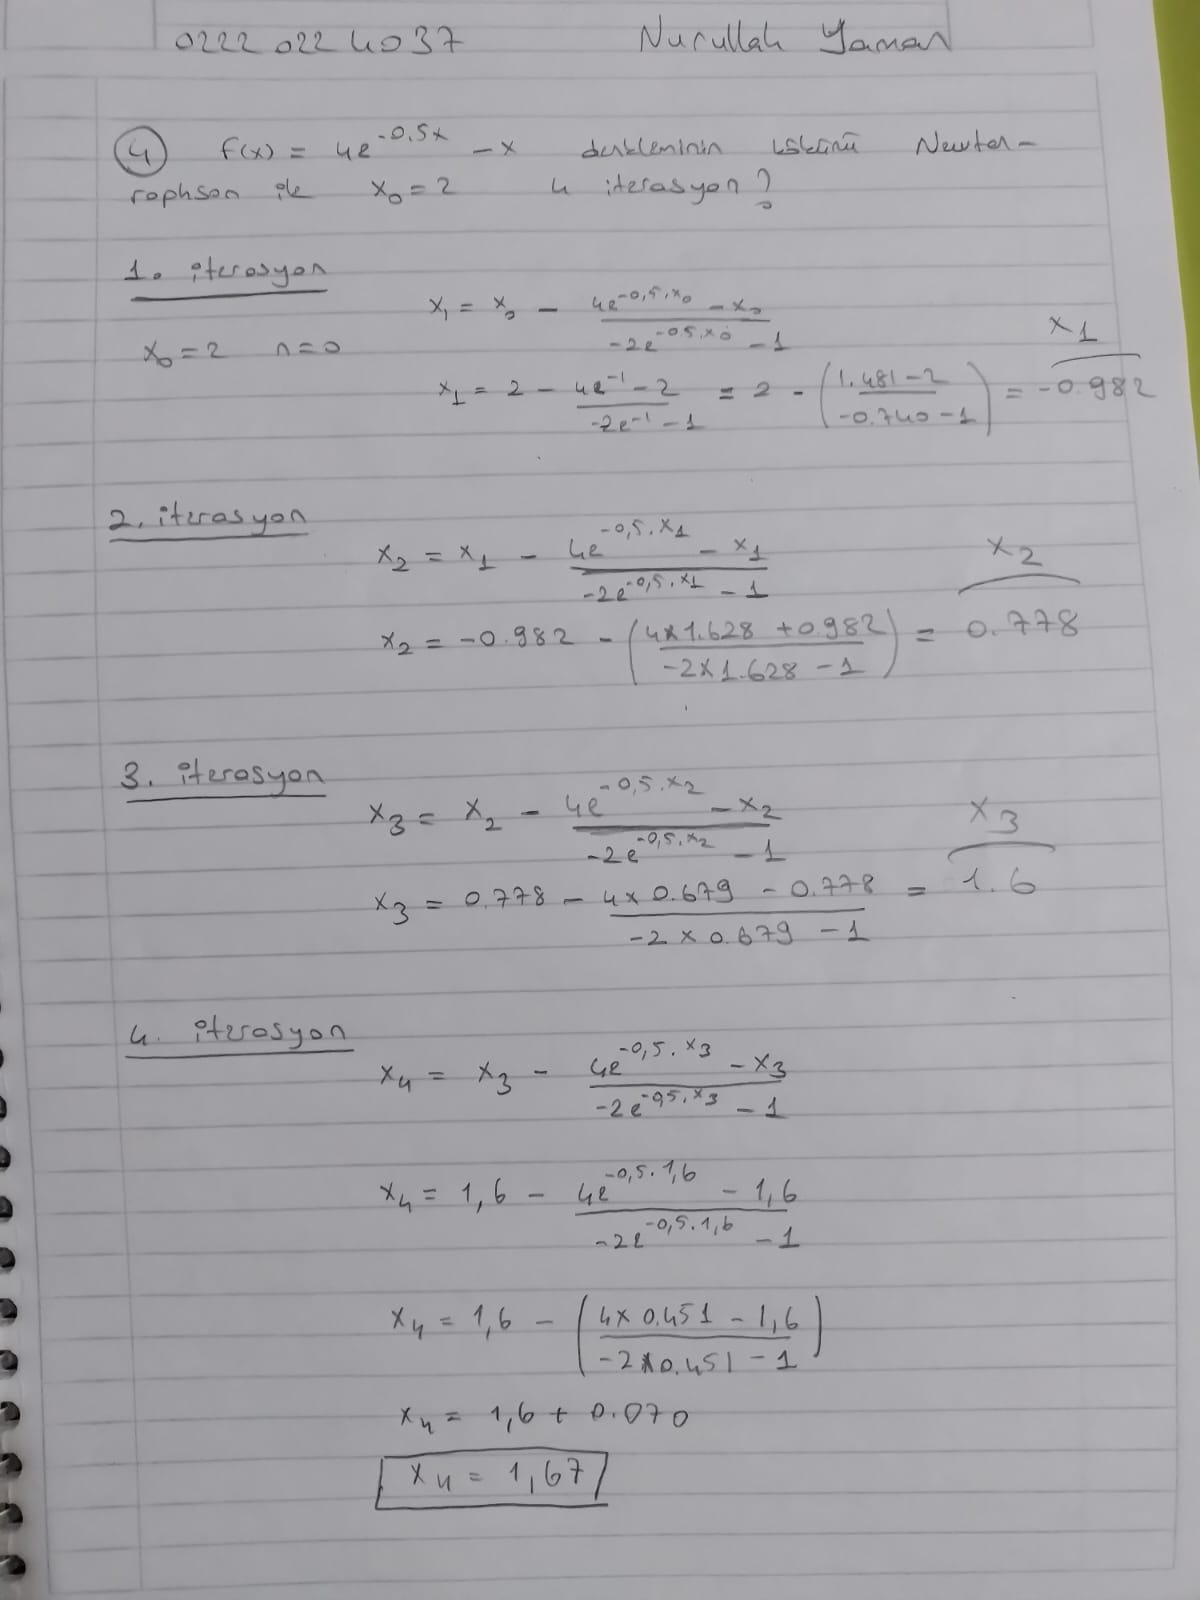 0222 022 4037 Nurullah Yaman
4 f(x) = 4e^-0.5x - x denkleminin kökünü Newton-
raphson ile x₀ = 2 4 iterasyon?
1. iterasyon
x₁ = x₀ - (4e^-0,5.x₀ - x₀) / (-2e^-0.5.x₀ - 1)
x₀ = 2 n = 0
x₁
x₁ = 2 - (4e^-1 - 2) / (-2e^-1 - 1) = 2 - ((1.481 - 2) / (-0.740 - 1)) = -0.982
2. iterasyon
x₂ = x₁ - (4e^-0,5.x₁ - x₁) / (-2e^-0,5.x₁ - 1)
x₂
x₂ = -0.982 - ((4x1.628 + 0.982) / (-2x1.628 - 1)) = 0.778
3. iterasyon
x₃ = x₂ - (4e^-0,5.x₂ - x₂) / (-2e^-0,5.x₂ - 1)
x₃
x₃ = 0.778 - (4x0.679 - 0.778) / (-2x0.679 - 1) = 1.6
4. iterasyon
x₄ = x₃ - (4e^-0,5.x₃ - x₃) / (-2e^-0,5.x₃ - 1)
x₄ = 1,6 - (4e^-0,5.1,6 - 1,6) / (-2e^-0,5.1,6 - 1)
x₄ = 1,6 - ((4x0.451 - 1,6) / (-2x0.451 - 1))
x₄ = 1,6 + 0.070
x₄ = 1,67